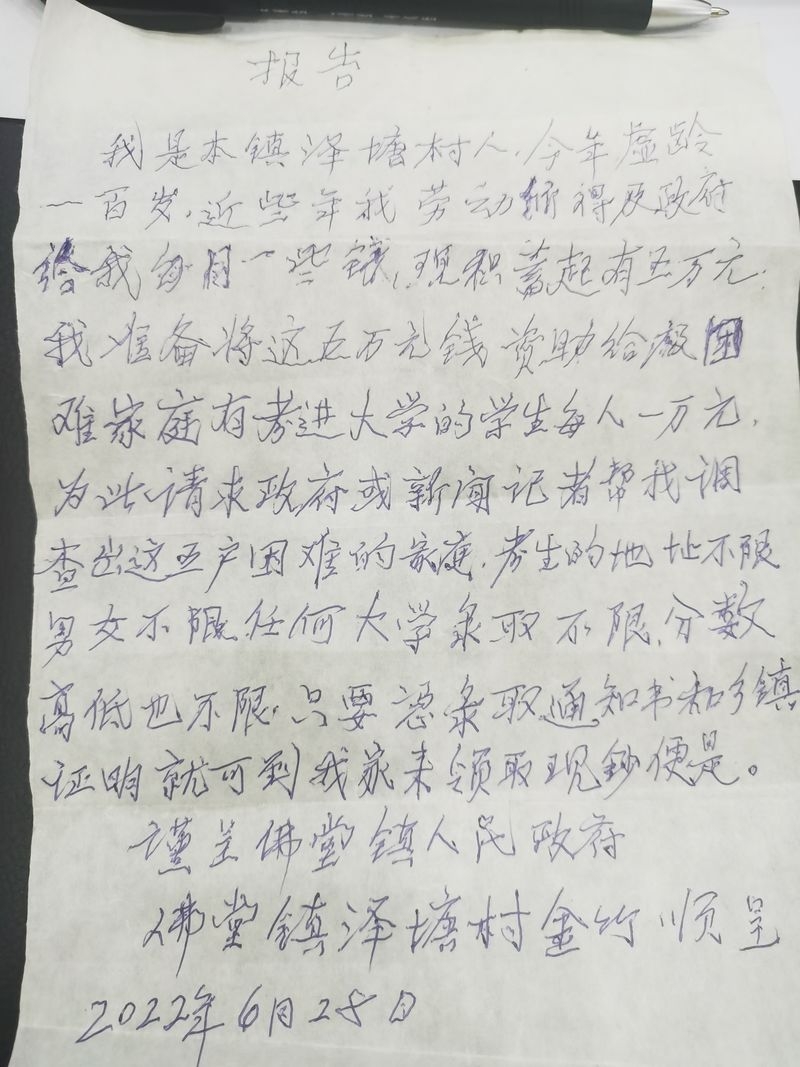 报告
我是本镇泽塘村人,今年虚龄
一百岁,近些年我劳动所得及政府
给我每月一些钱,现积蓄起有五万元.
我准备将这五万元钱资助给最困
难家庭有考进大学的学生每人一万元.
为此请求政府或新闻记者帮我调
查出这五户困难的家庭.考生的地址不限
男女不限,任何大学录取不限.分数
高低也不限.只要凭录取通知书和乡镇
证明就可到我家来领取现钞便是。
谨呈佛堂镇人民政府
佛堂镇泽塘村金竹顺呈
2022年6月28日